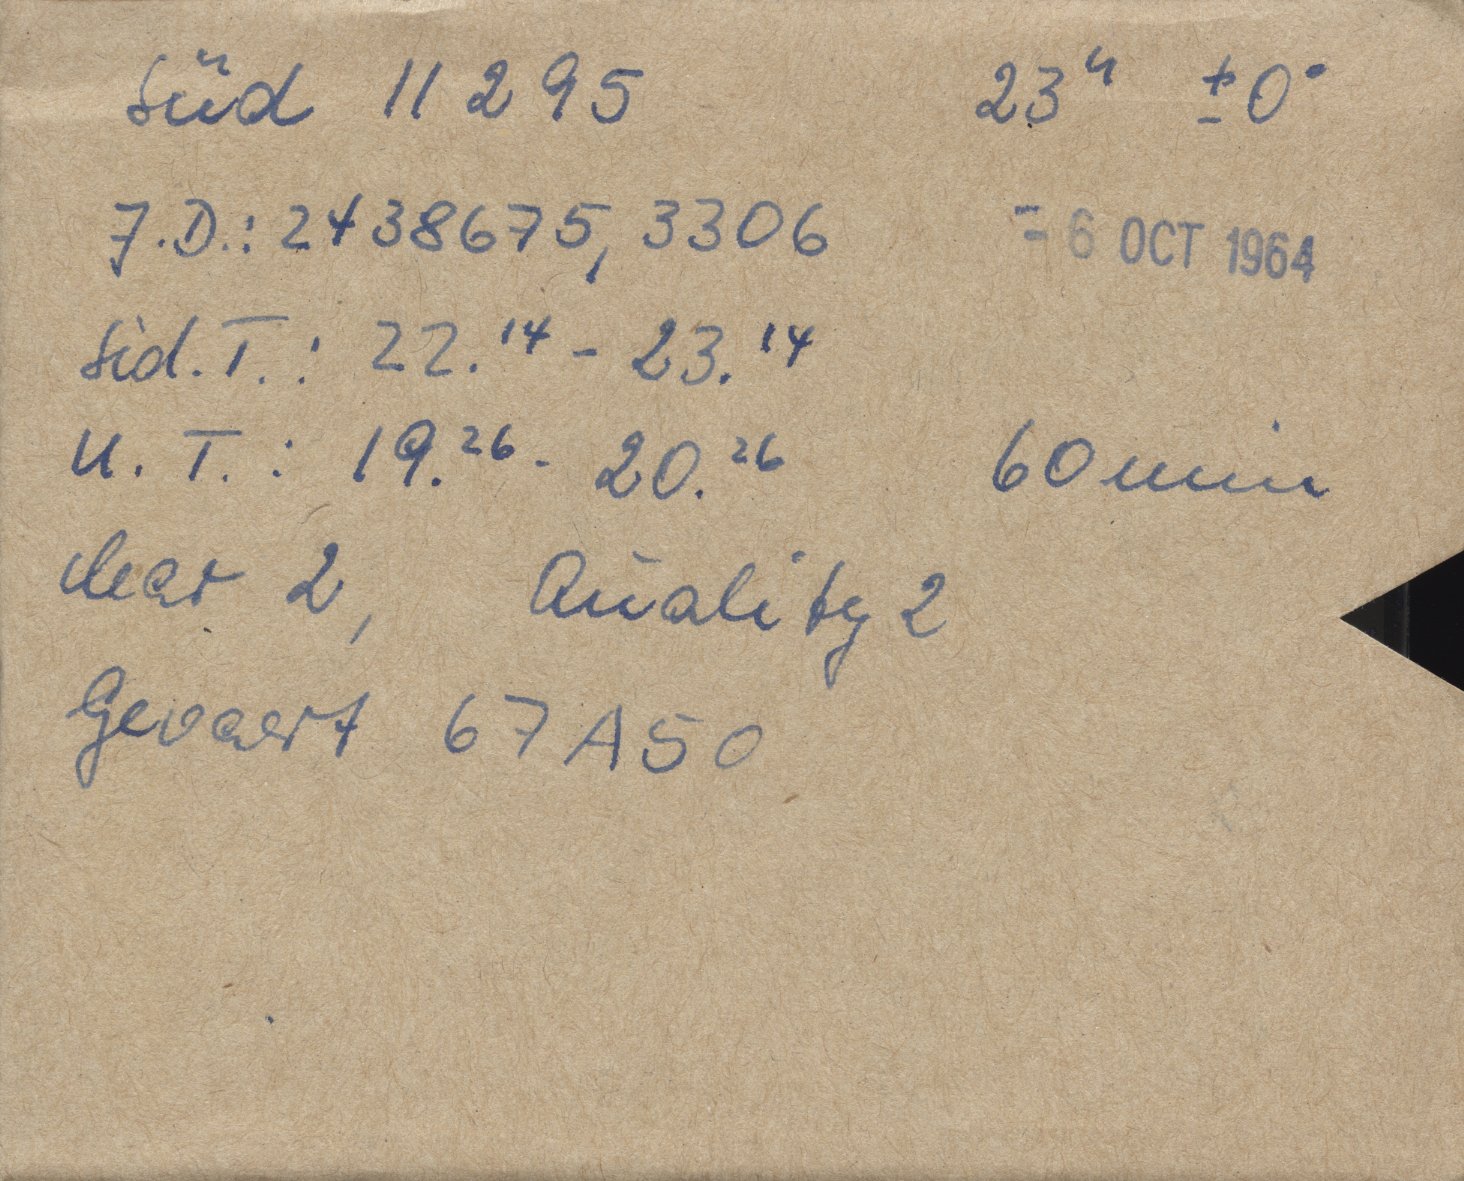 Süd 11295 23ʰ ±0°
J.D.: 2438675,3306 - 6 OCT 1964
Sid.T.: 22.¹⁴ - 23.¹⁴
U.T.: 19.²⁶ - 20.²⁶ 60 min
clear 2, Quality 2
Gevaert 67A50